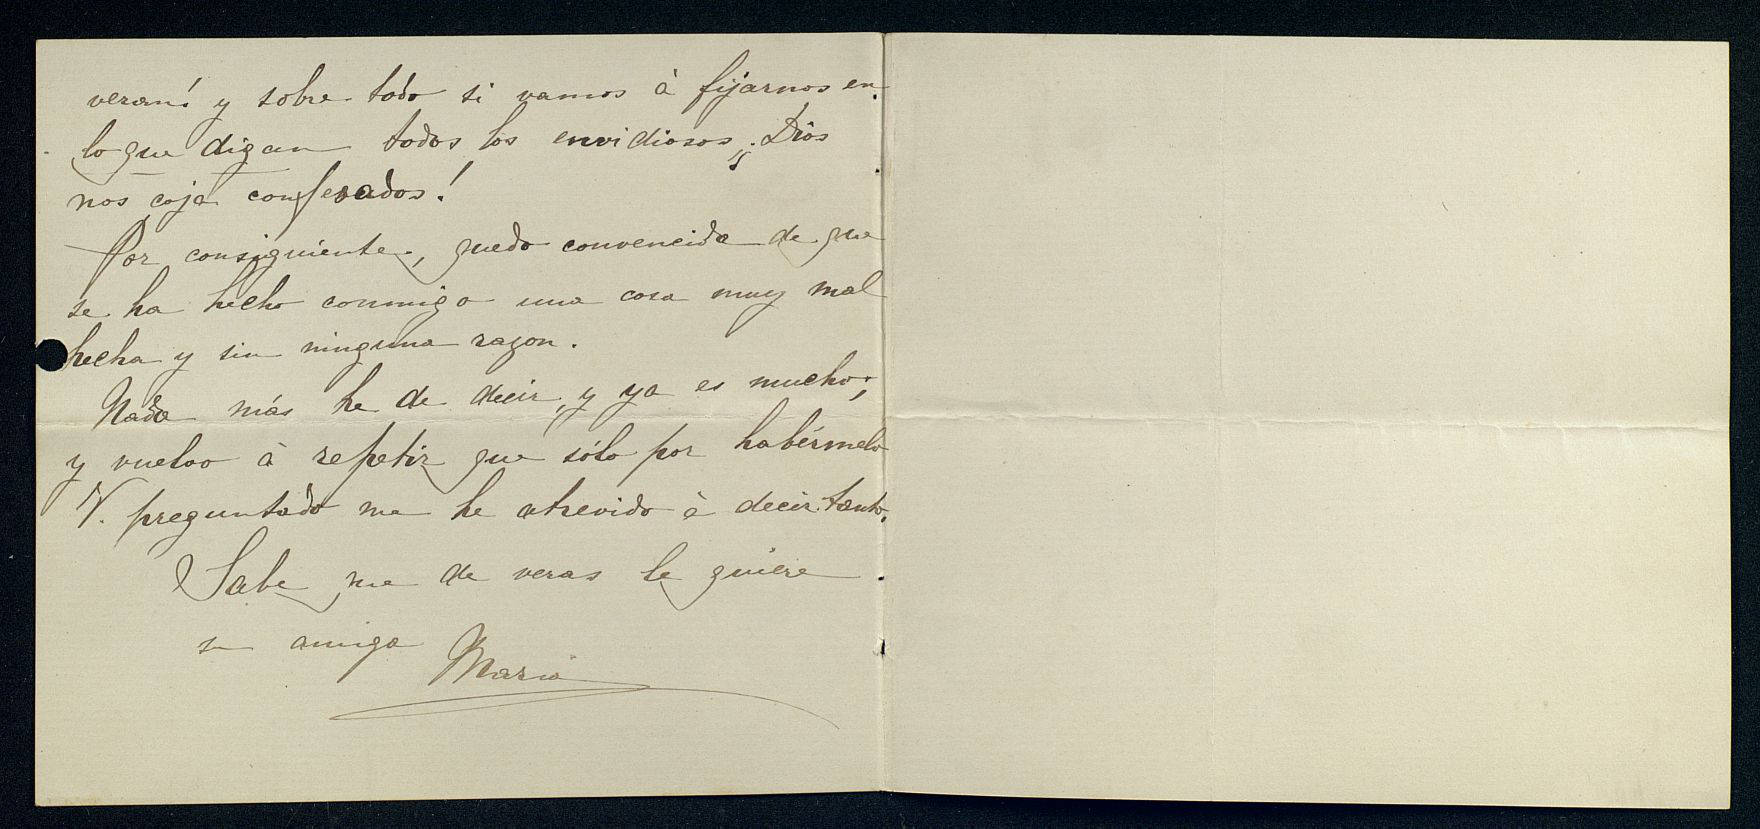 veran! y sobre todo si vamos à fijarnos en
lo que digan todos los envidiosos, ¡Dios
nos coja confesados!
Por consiguiente, quedo convencida de que
se ha hecho conmigo una cosa muy mal
hecha y sin ninguna razon.
Nada más he de decir, y ya es mucho;
y vuelvo à repetir que sólo por habérmelo
V. preguntado me he atrevido à decir tanto.
Sabe que de veras le quiere
su amiga
Maria